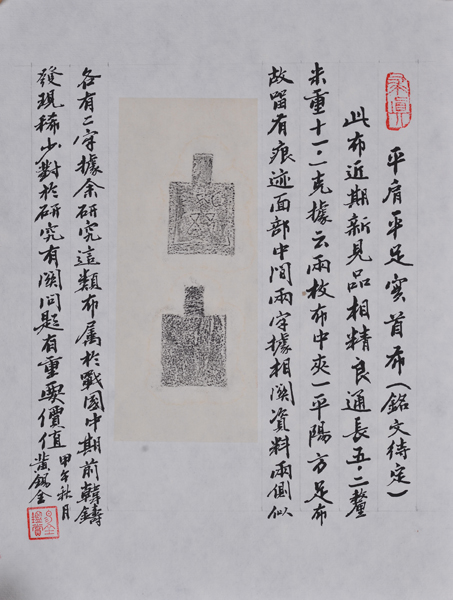 平肩平足实首布(銘文待定)
此布近期新見品相精良通長五·二釐
米重十一·二克據云兩枚布中夾一平陽方足布
故留有痕迹面部中间兩字據相関資料兩側似
各有二字據余研究這類布属於戰國中期前韓鑄
發現稀少對於研究有関问题有重要價值
甲午秋月
黄錫全